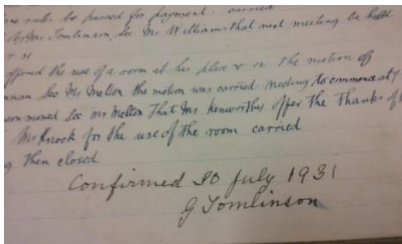 rules be passed for payment carried
Mr Tomlinson, Sec Mr Williams that next meeting be held
offered the use of a room at his place & on the motion of
Sec Mr Melton the motion was carried. Meeting to commence at
moved Sec Mr Melton That Mr Kenworthy offer the Thanks of
Mr Knock for the use of the room carried
then closed
Confirmed 30 July 1931
G Tomlinson